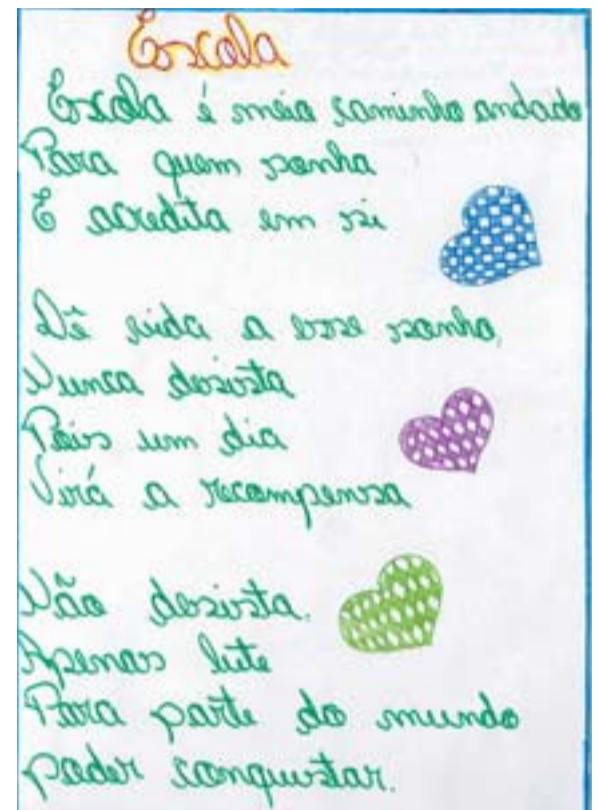 Escola
Escola é meio caminho andado
Para quem sonha
E acredita em si
Dê vida a esse sonho,
Nunca desista
Pois um dia
Virá a recompensa
Não desista.
Apenas lute
Para parte do mundo
poder conquistar.